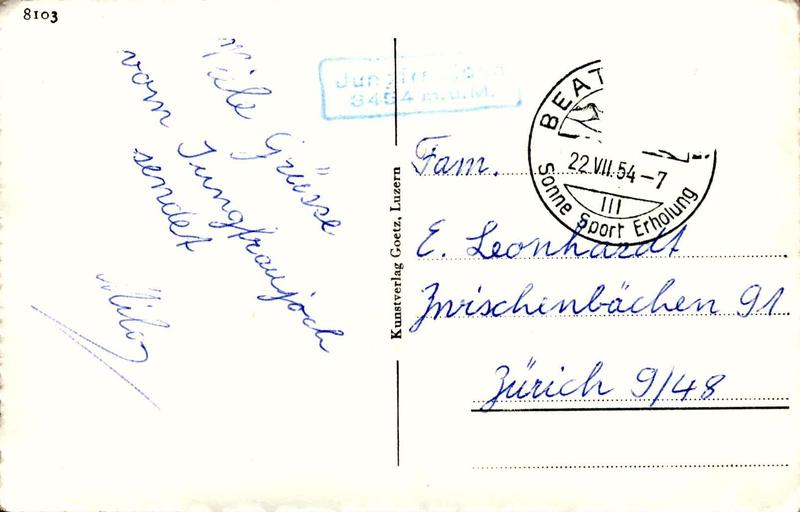 8103
Viele Grüsse
vom Jungfraujoch
sendet
3454 m.ü.M.
BEAT
22 VII. 54 - 7
III
Sonne Sport Erholung
Kunstverlag Goetz, Luzern
Fam.
E. Leonhardt
Zwischenbächen 91.
Zürich 9/48